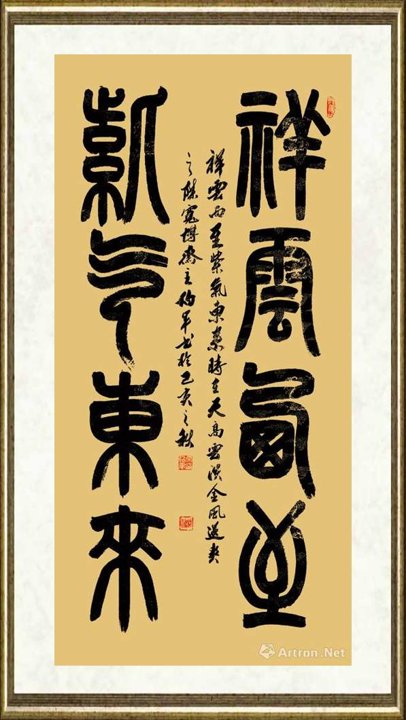 祥雲西至
紫气東來
祥雲西至紫氣東来時在天高雲淡金風送爽
之際寬博齋主平書於己亥之秋
Artron.Net